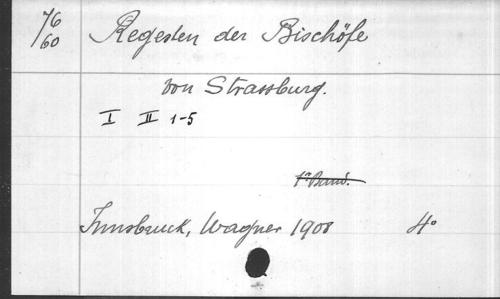 76/60 Regesten der Bischöfe
von Strassburg.
I II 1-5
1r Band.
Innsbruck, Wagner 1908 4°